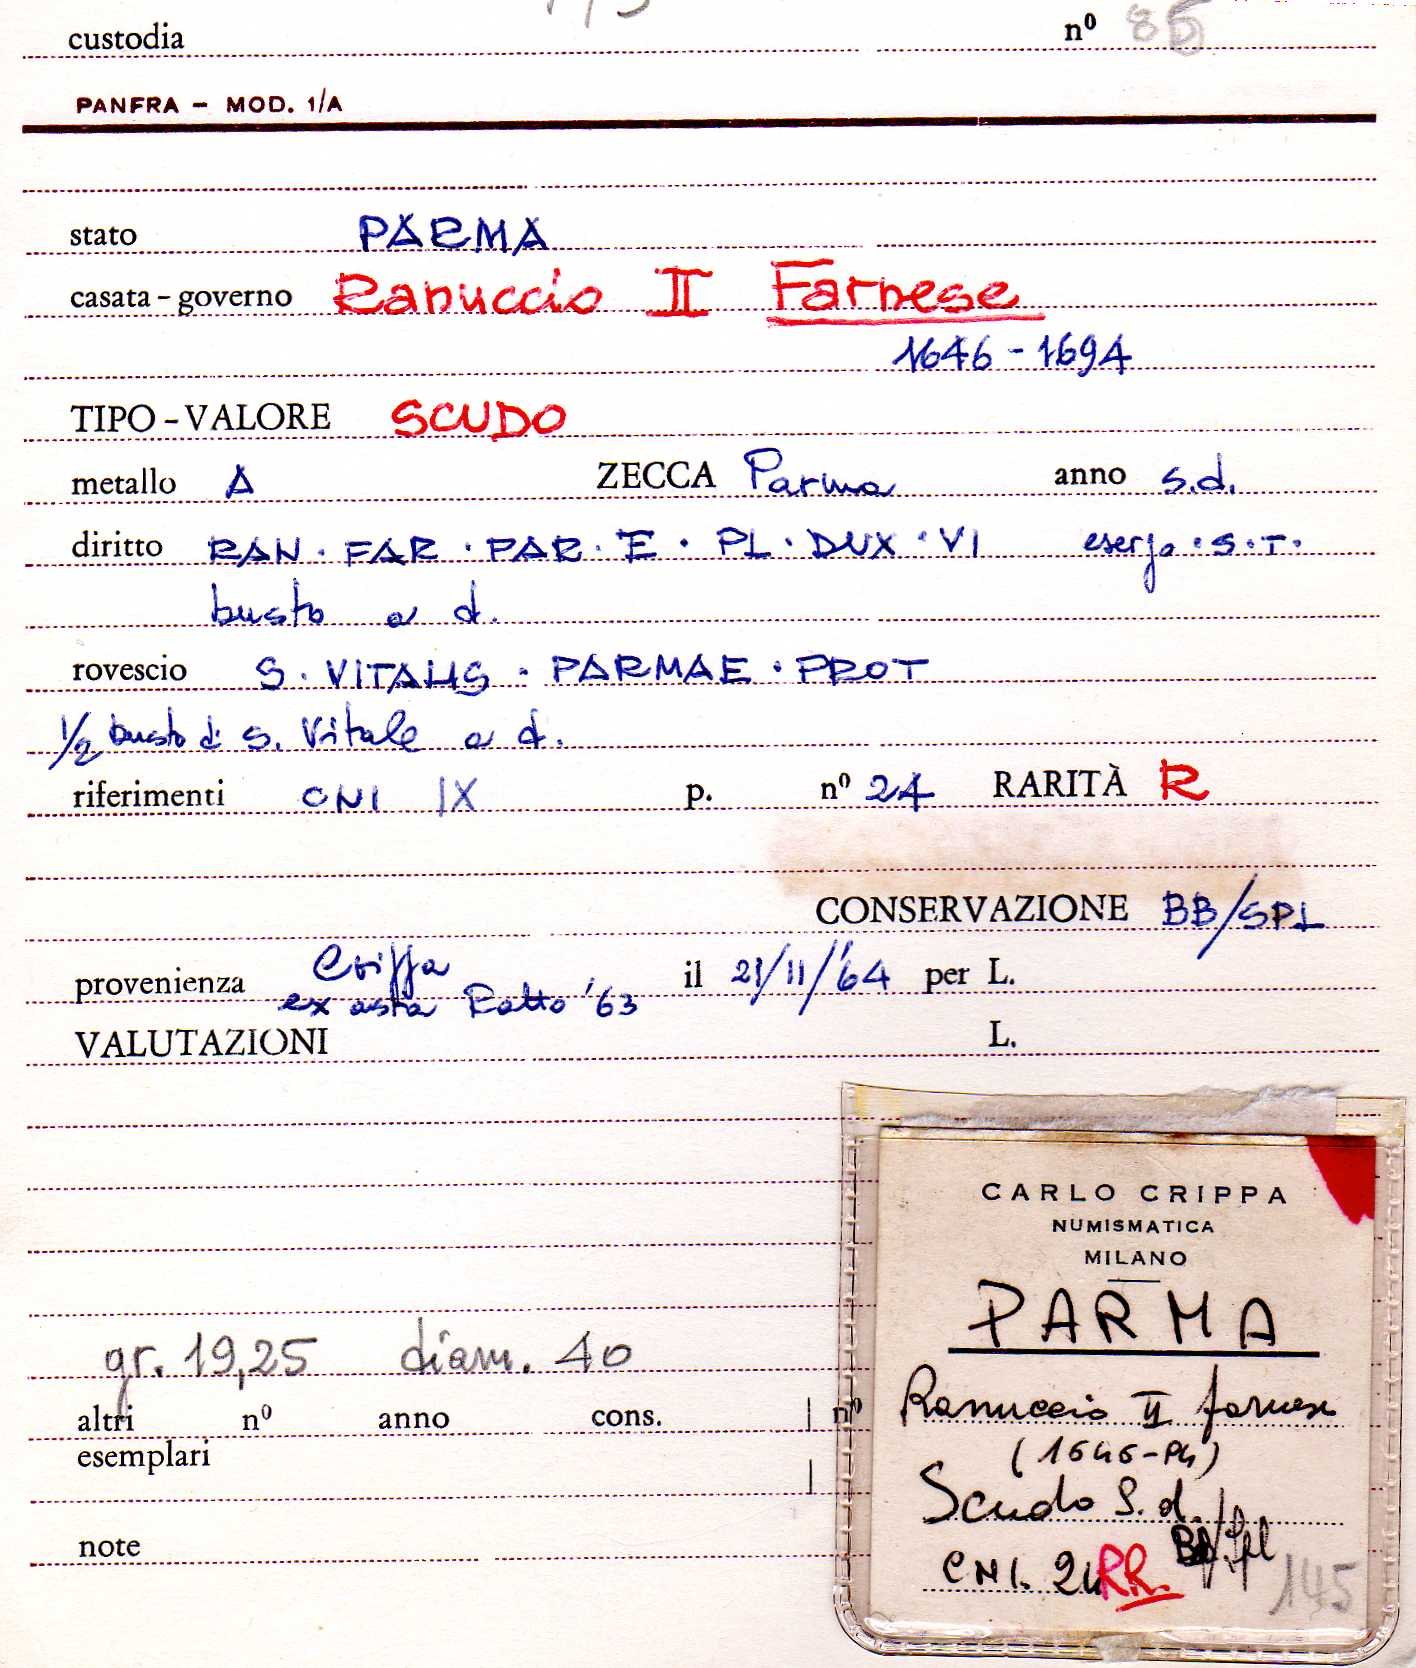 custodia nº 85
PANFRA - MOD. 1/A
stato PARMA
casata - governo Ranuccio II Farnese
1646 - 1694
TIPO - VALORE SCUDO
metallo A ZECCA Parma anno s.d.
diritto RAN · FAR · PAR · E · PL · DUX · VI esergo · S · T ·
busto a d.
rovescio S · VITALIS · PARMAE · PROT
1/2 busto di S. Vitale a d.
riferimenti CNI IX p. nº 24 RARITÀ R
CONSERVAZIONE BB/SPL
provenienza Crippa il 21/11/'64 per L.
ex asta Ratto '63
VALUTAZIONI L.
CARLO CRIPPA
NUMISMATICA
MILANO
PARMA
Ranuccio II farnese
(1646-94)
Scudo S.d.
BB/Spl
CNI. 24 R.R.
145
gr. 19,25 diam. 40
altri nº anno cons. nº
esemplari
note